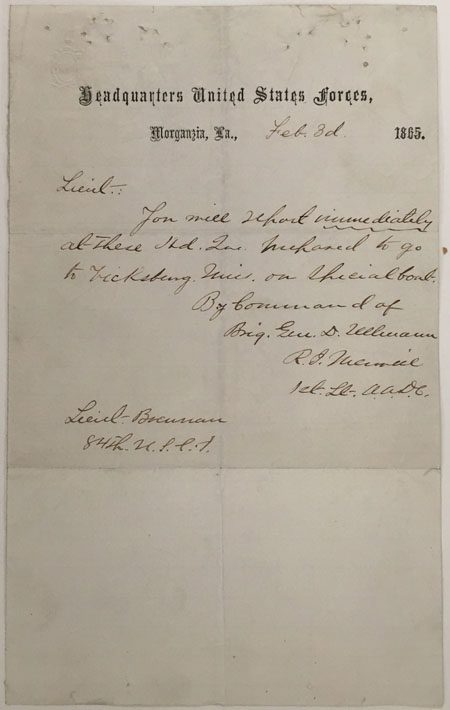 Headquarters United States Forces,
Morganzia, La., Feb. 3d 1865.
Lieut.:
You will report immediately
at these Hd. Qrs. prepared to go
to Vicksburg Miss. on Special boat.
By Command of
Brig. Gen. D. Ullmann
R. J.
1st. Lt. A.A.D.C.
Lieut. Brennan
84th. U.S.C.I.